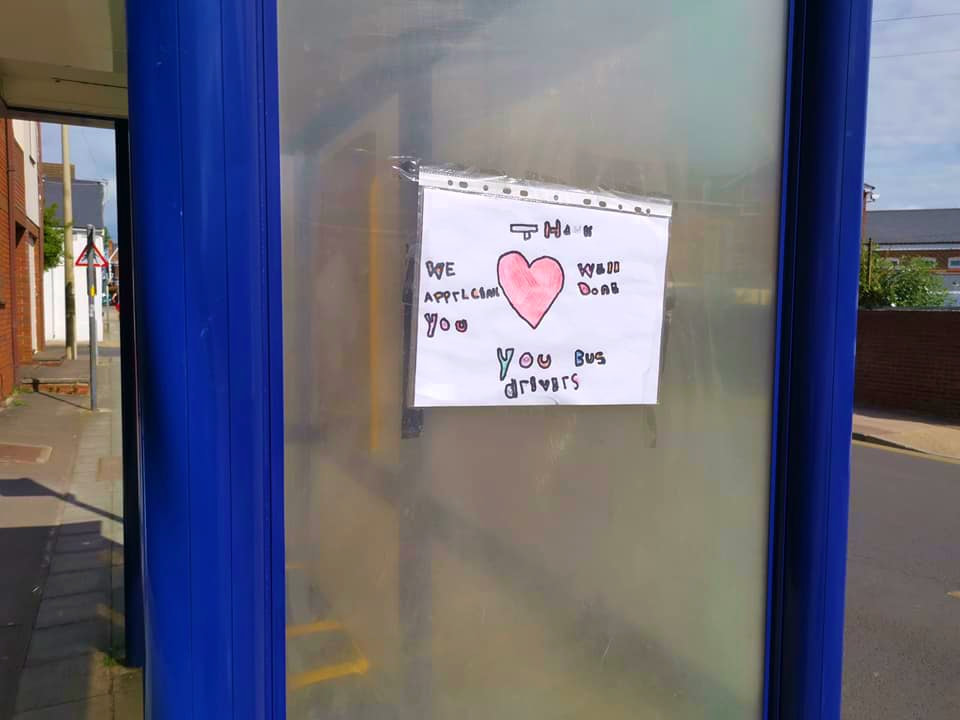 THank
WE
You
Well
Done
You Bus
drivers